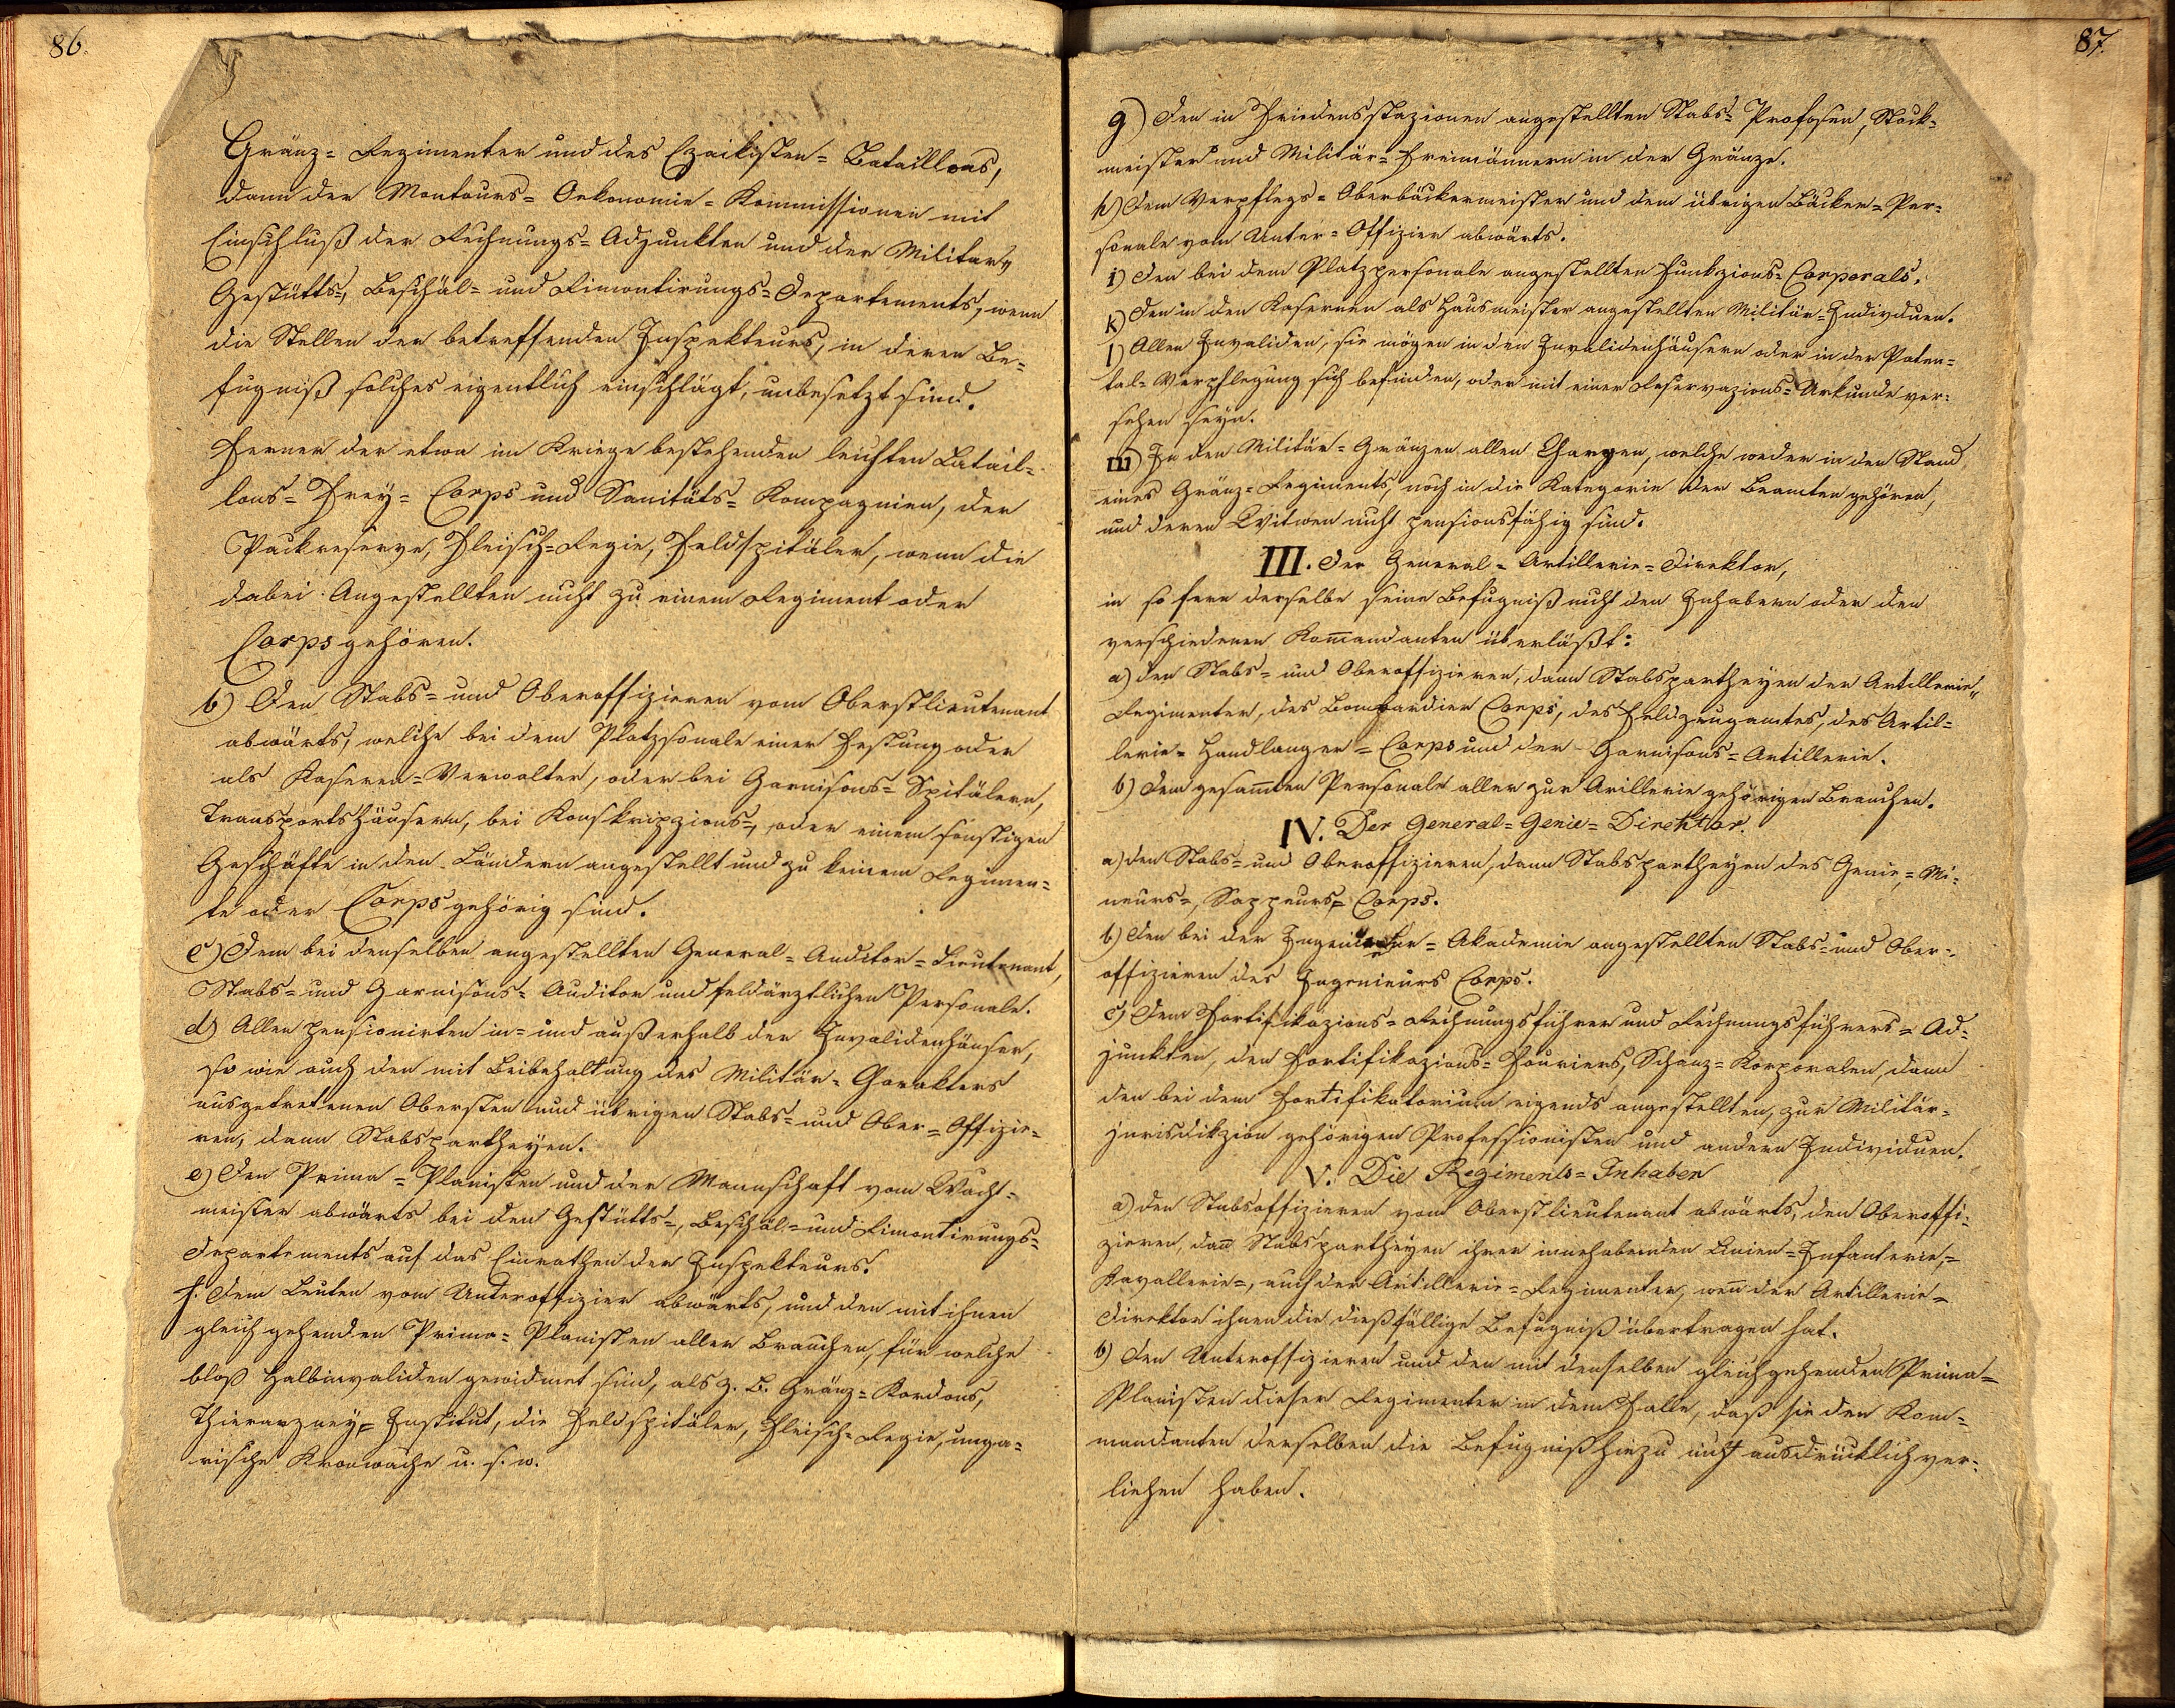 86.
Gränz= Regimenter und des Czaikisten= Bataillons,
dann der Montours= Oekonomie= Kommissionen mit
Einschluß der Rechnungs= Adjunkten und der Militär,,
Gestütts=, Beschäl= und Rimontirungs= Departements, wenn
die Stellen der betreffenden Inspekteurs, in deren Be=
fugniß solches eigentlich einschlägt, unbesetzt sind.
Ferner der etwa im Kriege bestehenden leichten Batail=
lons= Frey= Corps und Sanitäts= Kompagnien, der
Packreserve, Fleisch=Regie, Feldspitäler, wenn die
dabei Angestellten nicht zu einem Regiment oder
Corps gehören.
b) Den Stabs= und Oberoffizieren vom Oberstlieutenant
abwärts, welche bei dem Platzsonale einer Festung oder
als Kasernen=Verwalter, oder bei Garnisons= Spitälern,
Transportshäusern, bei Konskripzions=, oder einem sonstigen
Geschäfte in den Ländern angestellt und zu keinem Regimen=
te oder Corps gehörig sind.
c) Dem bei denselben angestellten General= Auditor= Lieutenant,
Stabs= und Garnisons= Auditor und feldärztlichen Personale.
d) Allen pensionirten in= und außerhalb der Invalidenhäuser,
so wie auch den mit Beibehaltung des Militär= Garakters
ausgetretenen Obersten und übrigen Stabs= und Ober= Offizie=
ren, dann Stabspartheyen.
e) Den Prima= Planisten und der Mannschaft vom Wacht=
meister abwärts bei den Gestütts=, Beschäl= und Rimontirungs=
Departements auf das Einrathen der Inspekteurs.
f. Dem Leuten vom Unteroffizier abwärts, und den mit ihnen
gleich gehenden Prima= Planisten aller Branchen, für welche
bloß Halbinvaliden gewidmet sind, als z. B. Gränz= Kordons,
Thierarzney= Institut, die Feldspitäler, Fleisch= Regie, unga=
rische Kronwache u. s. w.
87.
g) Den in Friedensstazionen angestellten Stabs= Profosen, Stock=
meister und Militär= Freimännern in der Gränze.
h) Dem Verpflegs= Oberbäckermeister und dem übrigen Bäcker= Per=
sonale vom Unter= Offizier abwärts.
i) Den bei dem Platzpersonale angestellten Funkzions= Corporals.
k) Den in den Kasernen als Hausmeister angestellten Militär= Indivduen.
l) Allen Invaliden, sie mögen in den Invalidenhäusern oder in der Paten=
tal= Verpflegung sich befinden, oder mit einer Reservazions= Urkunde ver=
sehen seyn.
m) In den Militär= Gränzen allen Chargen, welche weder in den Stand
eines Gränz= Regiments, noch in die Kategorie der Beamten gehören,
und deren Witwen nicht pensionsfähig sind.
III. Der General= Artillerie= Direktor,
in so fern derselbe seine Befugniß nicht den Inhabern oder den
verschiedenen Kom̄andanten überläßt:
a) den Stabs= und Oberoffizieren, dann Stabspartheyen der Artillerie,,
Regimenter, des Bombardier Corps, des Feldzeugamtes, des Artil=
lerie= Handlanger= Corps und der Garnisons= Artillerie.
b) Dem gesam̄ten Personale aller zur Arillerie gehörigen Branchen.
IV. Der General= Genie= Direktor.
a) den Stabs= und Oberoffizieren, dann Stabspartheyen des Genie,= Mi=
neurs=, Sappeurs= Corps.
b) Den bei der Akademie angestellten Stabs= und Ober=
offizieren des Ingenieurs Corps.
c) Dem Fortifikazions= Rechnungsführer und Rechnungsführers= Ad=
junkten, den Fortifikazions= Fouriers, Schanz= Korporalen, dann
den bei dem Fortifikatorium eigends angestellten, zur Militär=
jurisdikzion gehörigen Professionisten und andern Individuen.
V. Die Regiments= Inhaber
a) den Stabsoffizieren vom Oberstlieutenant abwärts, den Oberoffi=
zieren, dan̄ Stabspartheyen ihrer innehabenden Linien= Infanterie,=
Kavallerie=, auch der Artillerie= Regimenter, wen̄ der Artillerie=
Direktor ihnen die dießfällige Befugniß übertragen hat.
b) Den Unteroffizieren und den mit denselben gleichgehenden Prima=
Planisten dieser Regimenter in dem Falle, daß sie den Kom=
mandanten derselben die Befugniß hiezu nicht ausdrücklich ver=
liehen haben.